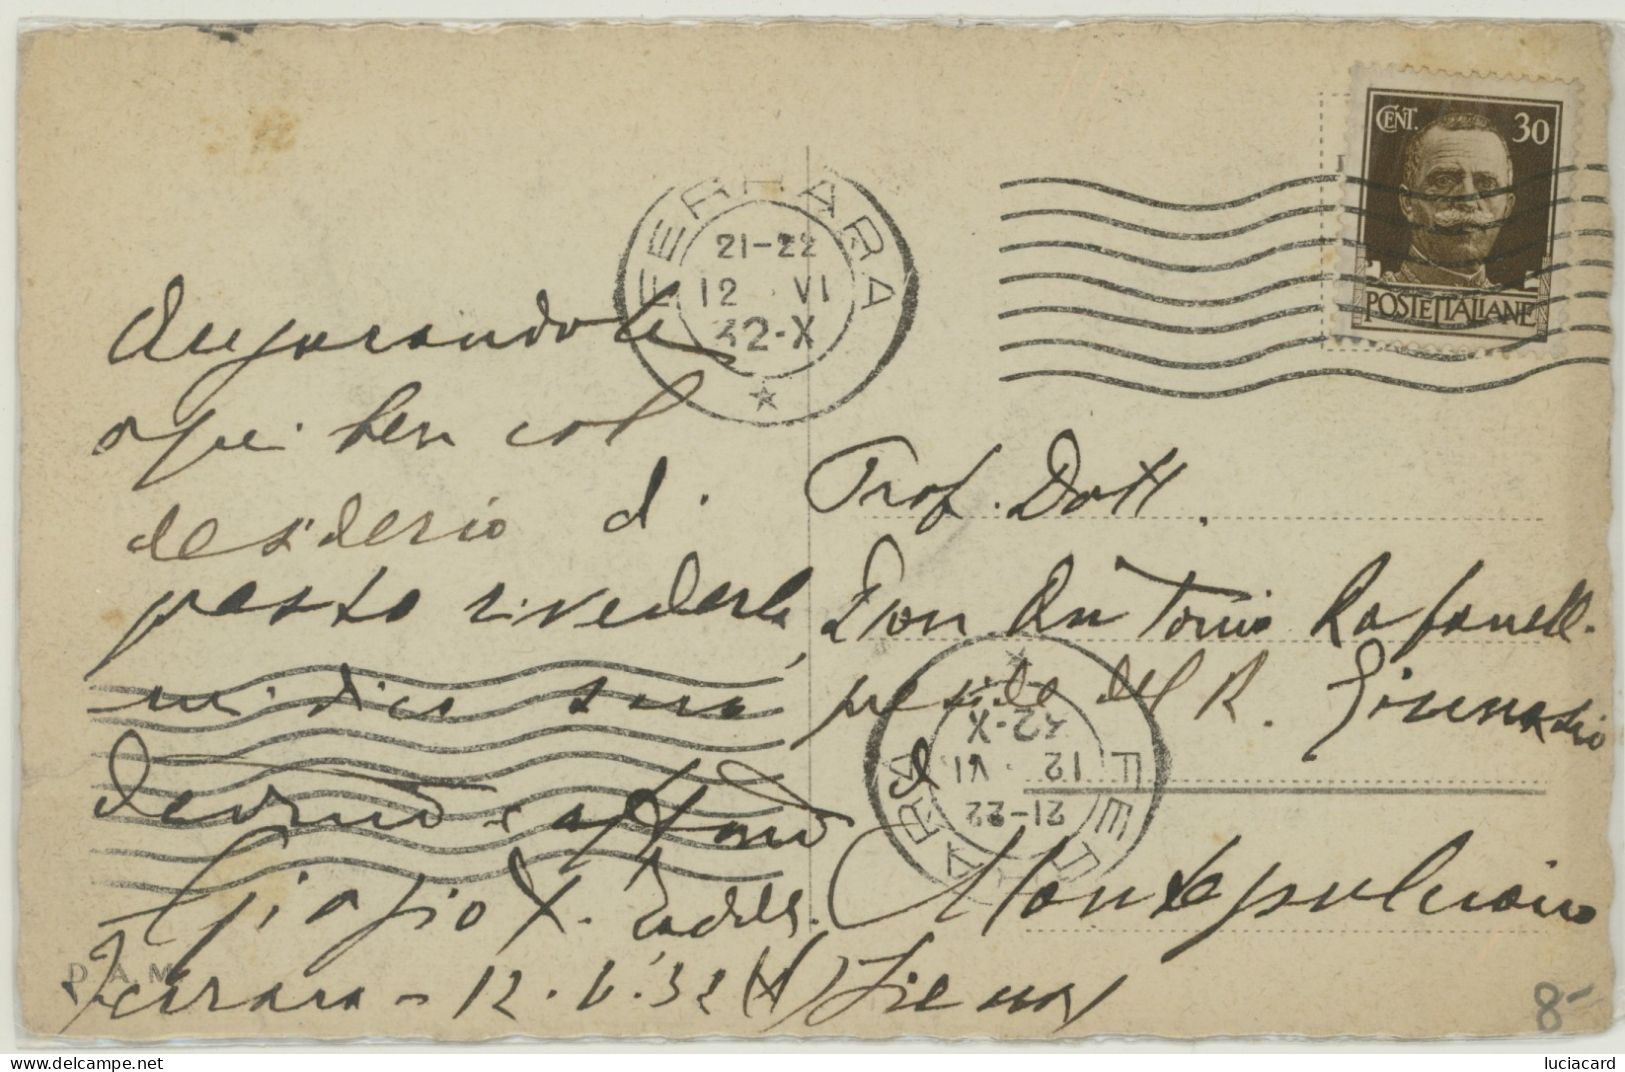 FERRARA
21-22
12 VI
32-X
CENT. 30
POSTE ITALIANE
Augurandole
ogni ben col
desiderio di
presto rivederla,
mi dico suo
devmo e affmo
Giorgio
Ferrara - 12. 6. 32 (X)
Prof. Dott.
Don Antonio Rafanelli
preside del R. Ginnasio
di
Montepulciano
(Siena)
FERRARA
21-22
12 VI
32-X
8-
luciacard